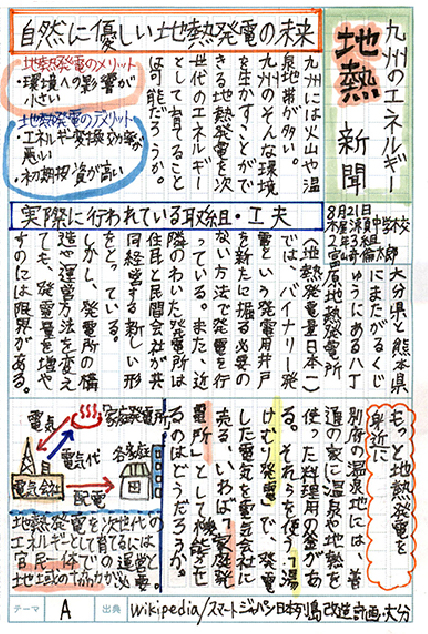 九州のエネルギー
地熱
新聞
8月21日
2年3組
自然に優しい地熱発電の未来
九州には火山や温
泉地帯が多い。
九州のそんな環境
を生かすことがで
きる地熱発電を次
世代のエネルギー
として育てること
は可能だろうか。
地熱発電のメリット
・環境への影響が
小さい
地熱発電のデメリット
・エネルギー変換効率が
悪い
・初期投資が高い
実際に行われている取組・工夫
大分県と熊本県
にまたがるくじ
ゅうにある八丁
原地熱発電所
(地熱発電量日本一)
では、バイナリー発
電という発電用井戸
を新たに掘る必要の
ない方法で発電を行
っている。また、近
隣のわいた発電所は
住民と民間会社が共
同経営する新しい形
をとっている。
しかし、発電所の構
造や運営方法を変え
ても、発電量を増や
すのには限界がある。
もっと地熱発電を
身近に
別府の温泉地には、普
通の家に温泉や地熱を
使った料理用の釜があ
る。それらを使う「湯
けむり発電」で、発電
した電気を電気会社に
売る、いわば「家庭発
電所」として機能させ
るのはどうだろうか。
電気
家庭発電所
各家庭
電気代
電気会社
配電
地熱発電を次世代の
エネルギーとして育てるには
官民一体での運営と
地域のちからが必要。
テーマ
A
出典
Wikipedia/スマートジャパン日本列島改造計画・大分